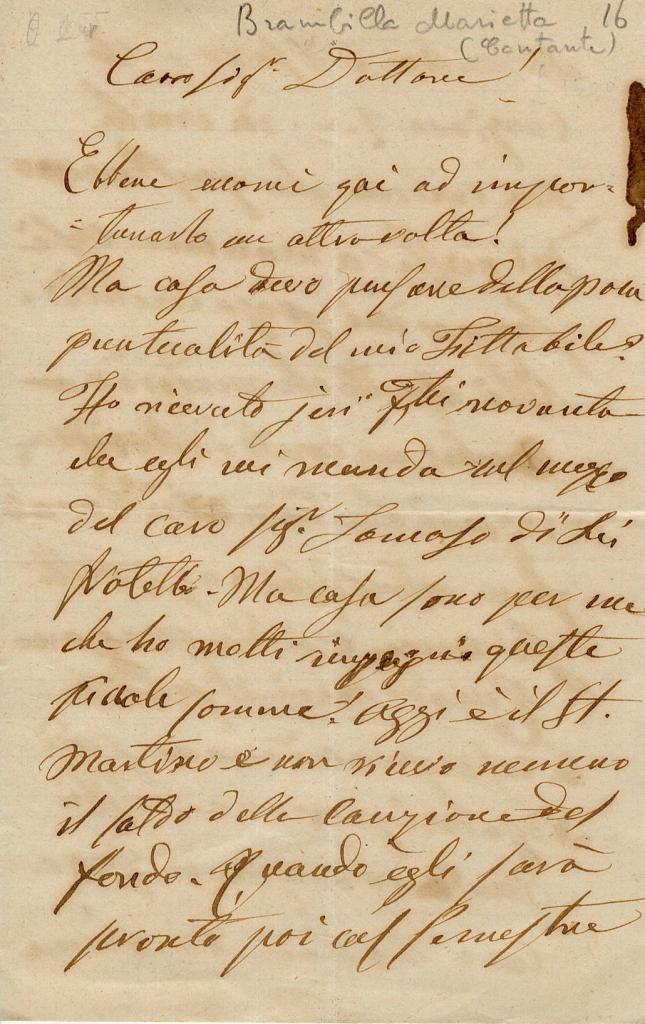 Brambilla Marietta 16
(Cantante)
Caro sigr. Dottore!
Ebbene eccomi qai ad impor=
=tunarlo un altra volta!
Ma cosa devo pensare della poca
puntualità del mio Fittabile?
Ho ricevuto jeri novanta
che egli mi manda sul mezzo
del caro sigr. Tomaso di Lei
fratello. Ma cosa sono per me
che ho molti impegni queste
piccole somme! Oggi è il St.
Martino e non ricevo nemeno
il saldo della Cauzione del
fondo. Quando egli sarà
pronto poi col Semestre